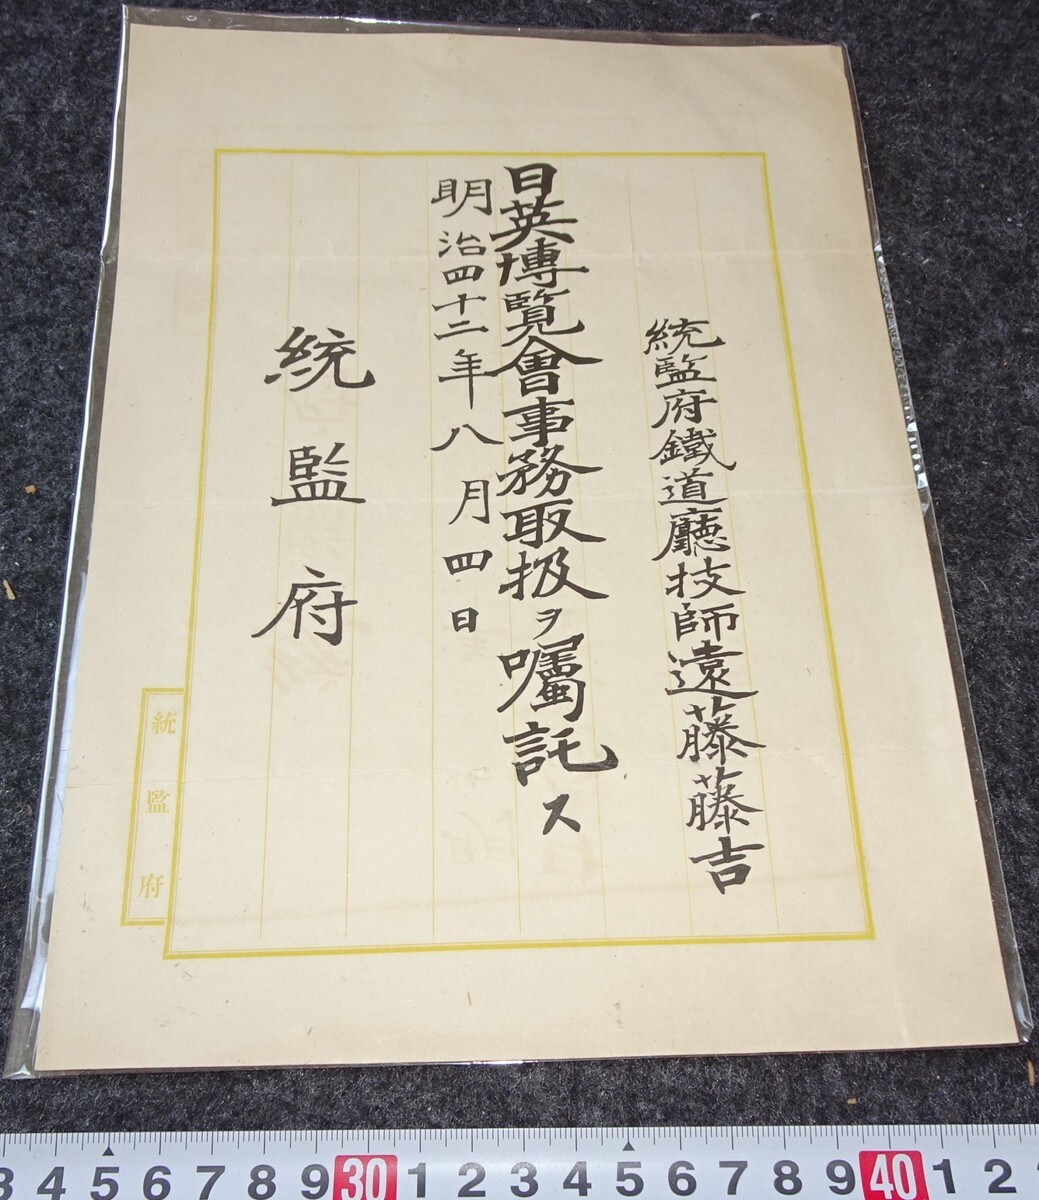 統監府鐵道廳技師遠藤藤吉
日英博覽會事務取扱ヲ囑託ス
明治四十二年八月四日
統監府
統監府
3 4 5 6 7 8 9 30 1 2 3 4 5 6 7 8 9 40 1 2